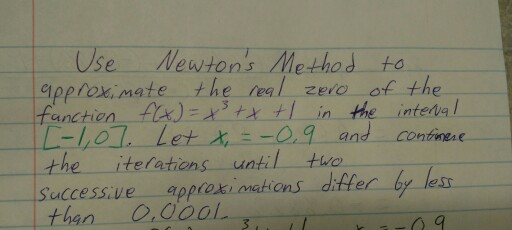 Use Newton's Method to
approximate the real zero of the
function f(x) = x³ + x + 1 in the interval
[-1,0]. Let x₁ = -0.9 and continue
the iterations until two
successive approximations differ by less
than 0.0001